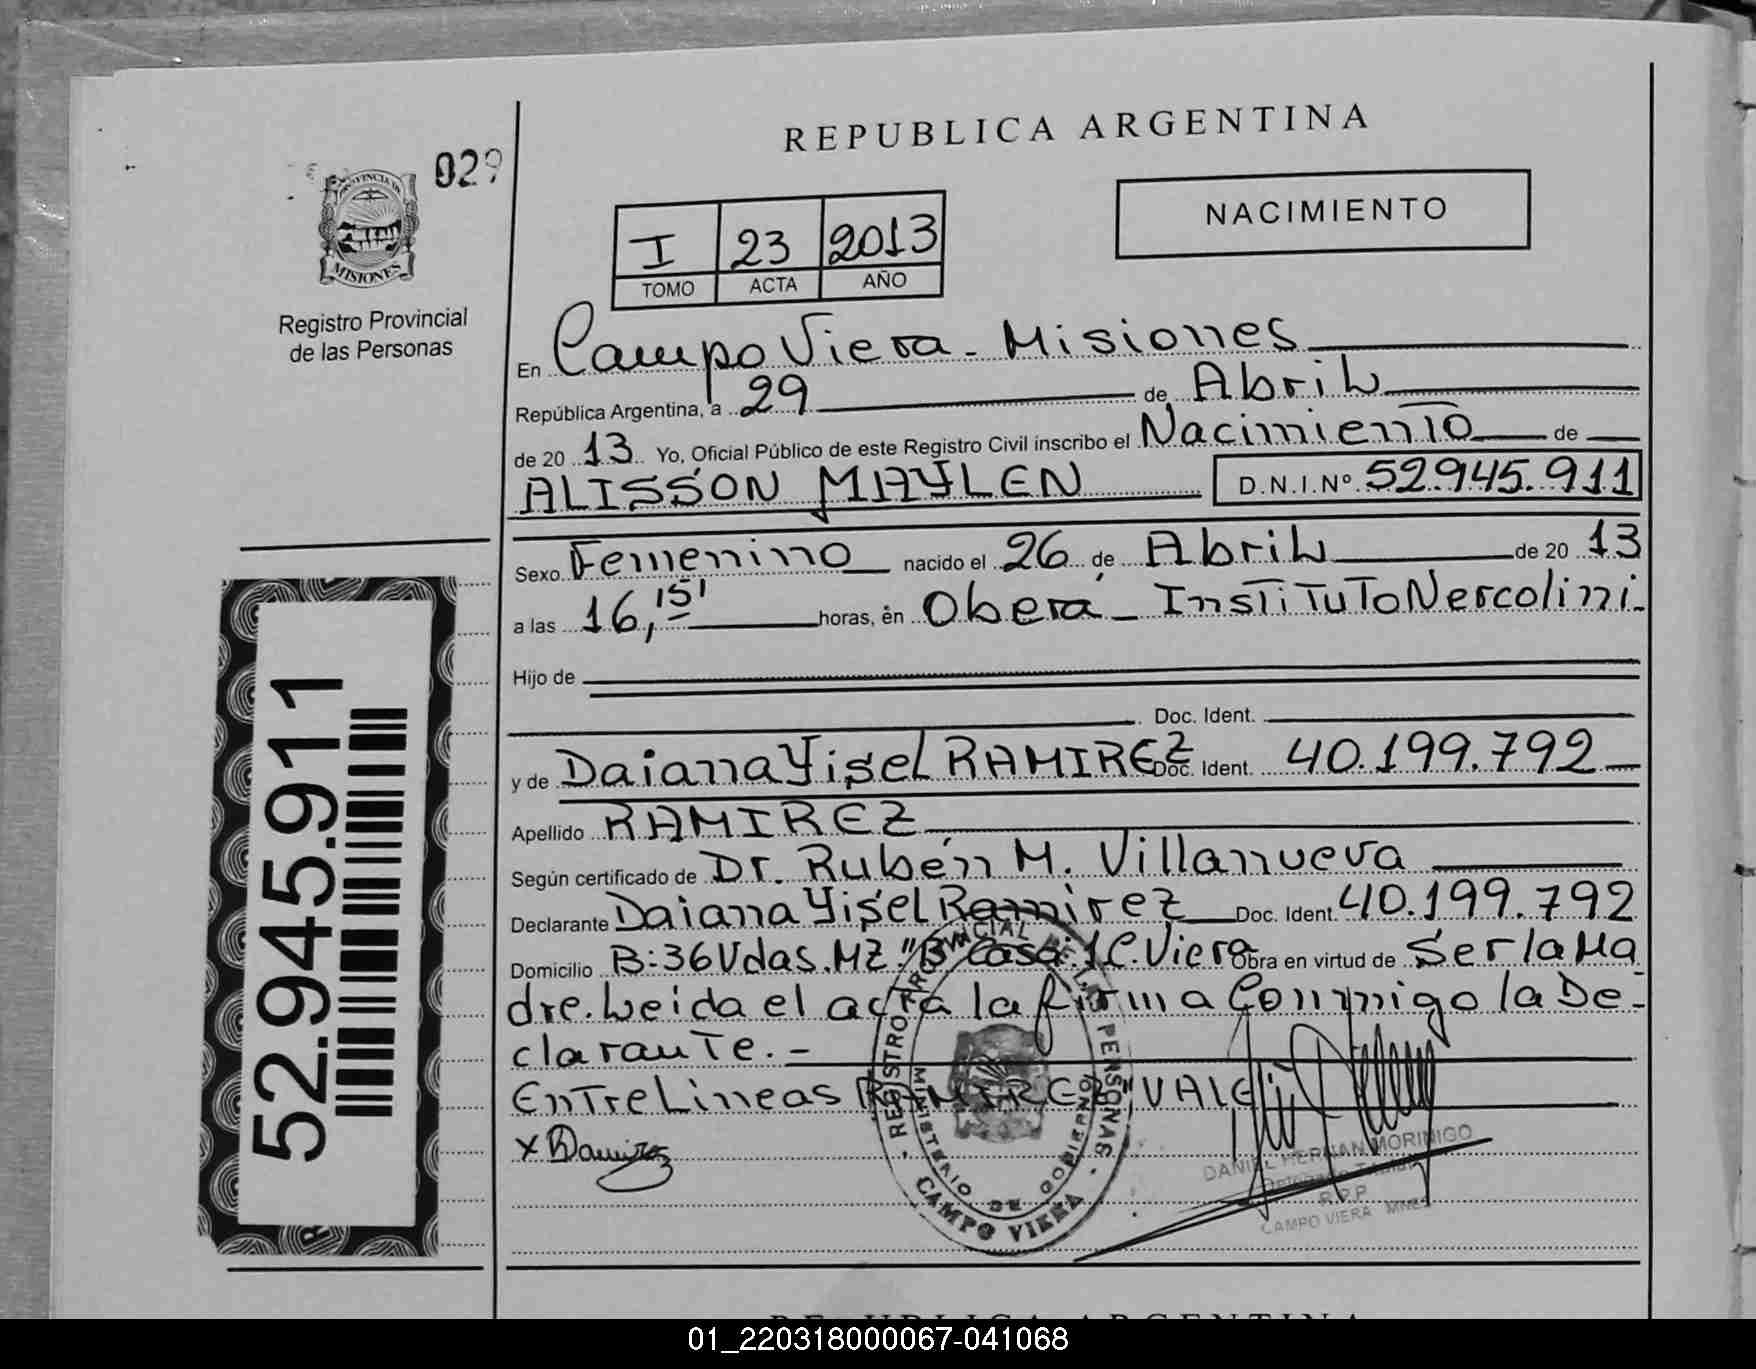 REPUBLICA ARGENTINA
029
PROVINCIA DE
MISIONES
Registro Provincial
de las Personas
NACIMIENTO
I 23 2013
TOMO ACTA AÑO
En Campo Viera - Misiones
República Argentina, a 29 de Abril
de 20 13 Yo, Oficial Público de este Registro Civil inscribo el Nacimiento de
ALISSON MAYLEN D.N.I.Nº 52.945.911
Sexo Femenino nacido el 26 de Abril de 20 13
a las 16,15' horas, en Oberá - Instituto Nercolini.
Hijo de
Doc. Ident.
y de Daiana Yisel RAMIREZ Doc. Ident. 40.199.792
Apellido RAMIREZ
Según certificado de Dr. Rubén M. Villanueva
Declarante Daiana Yisel Ramirez Doc. Ident. 40.199.792
Domicilio B:36Vdas.MZ."B"Casa:1C.Viera Obra en virtud de Ser la Ma
dre. Leida el acta la firma Conmigo la De-
clarante. -
Entre Lineas RAMIREZ: VALE
x DRamirez
REGISTRO PROVINCIAL DE LAS PERSONAS
MINISTERIO DE GOBIERNO
CAMPO VIERA
DANIEL HERNAN MORINIGO
R.P.P.
CAMPO VIERA MNES
52.945.911
REPUBLICA ARGENTINA
01_220318000067-041068